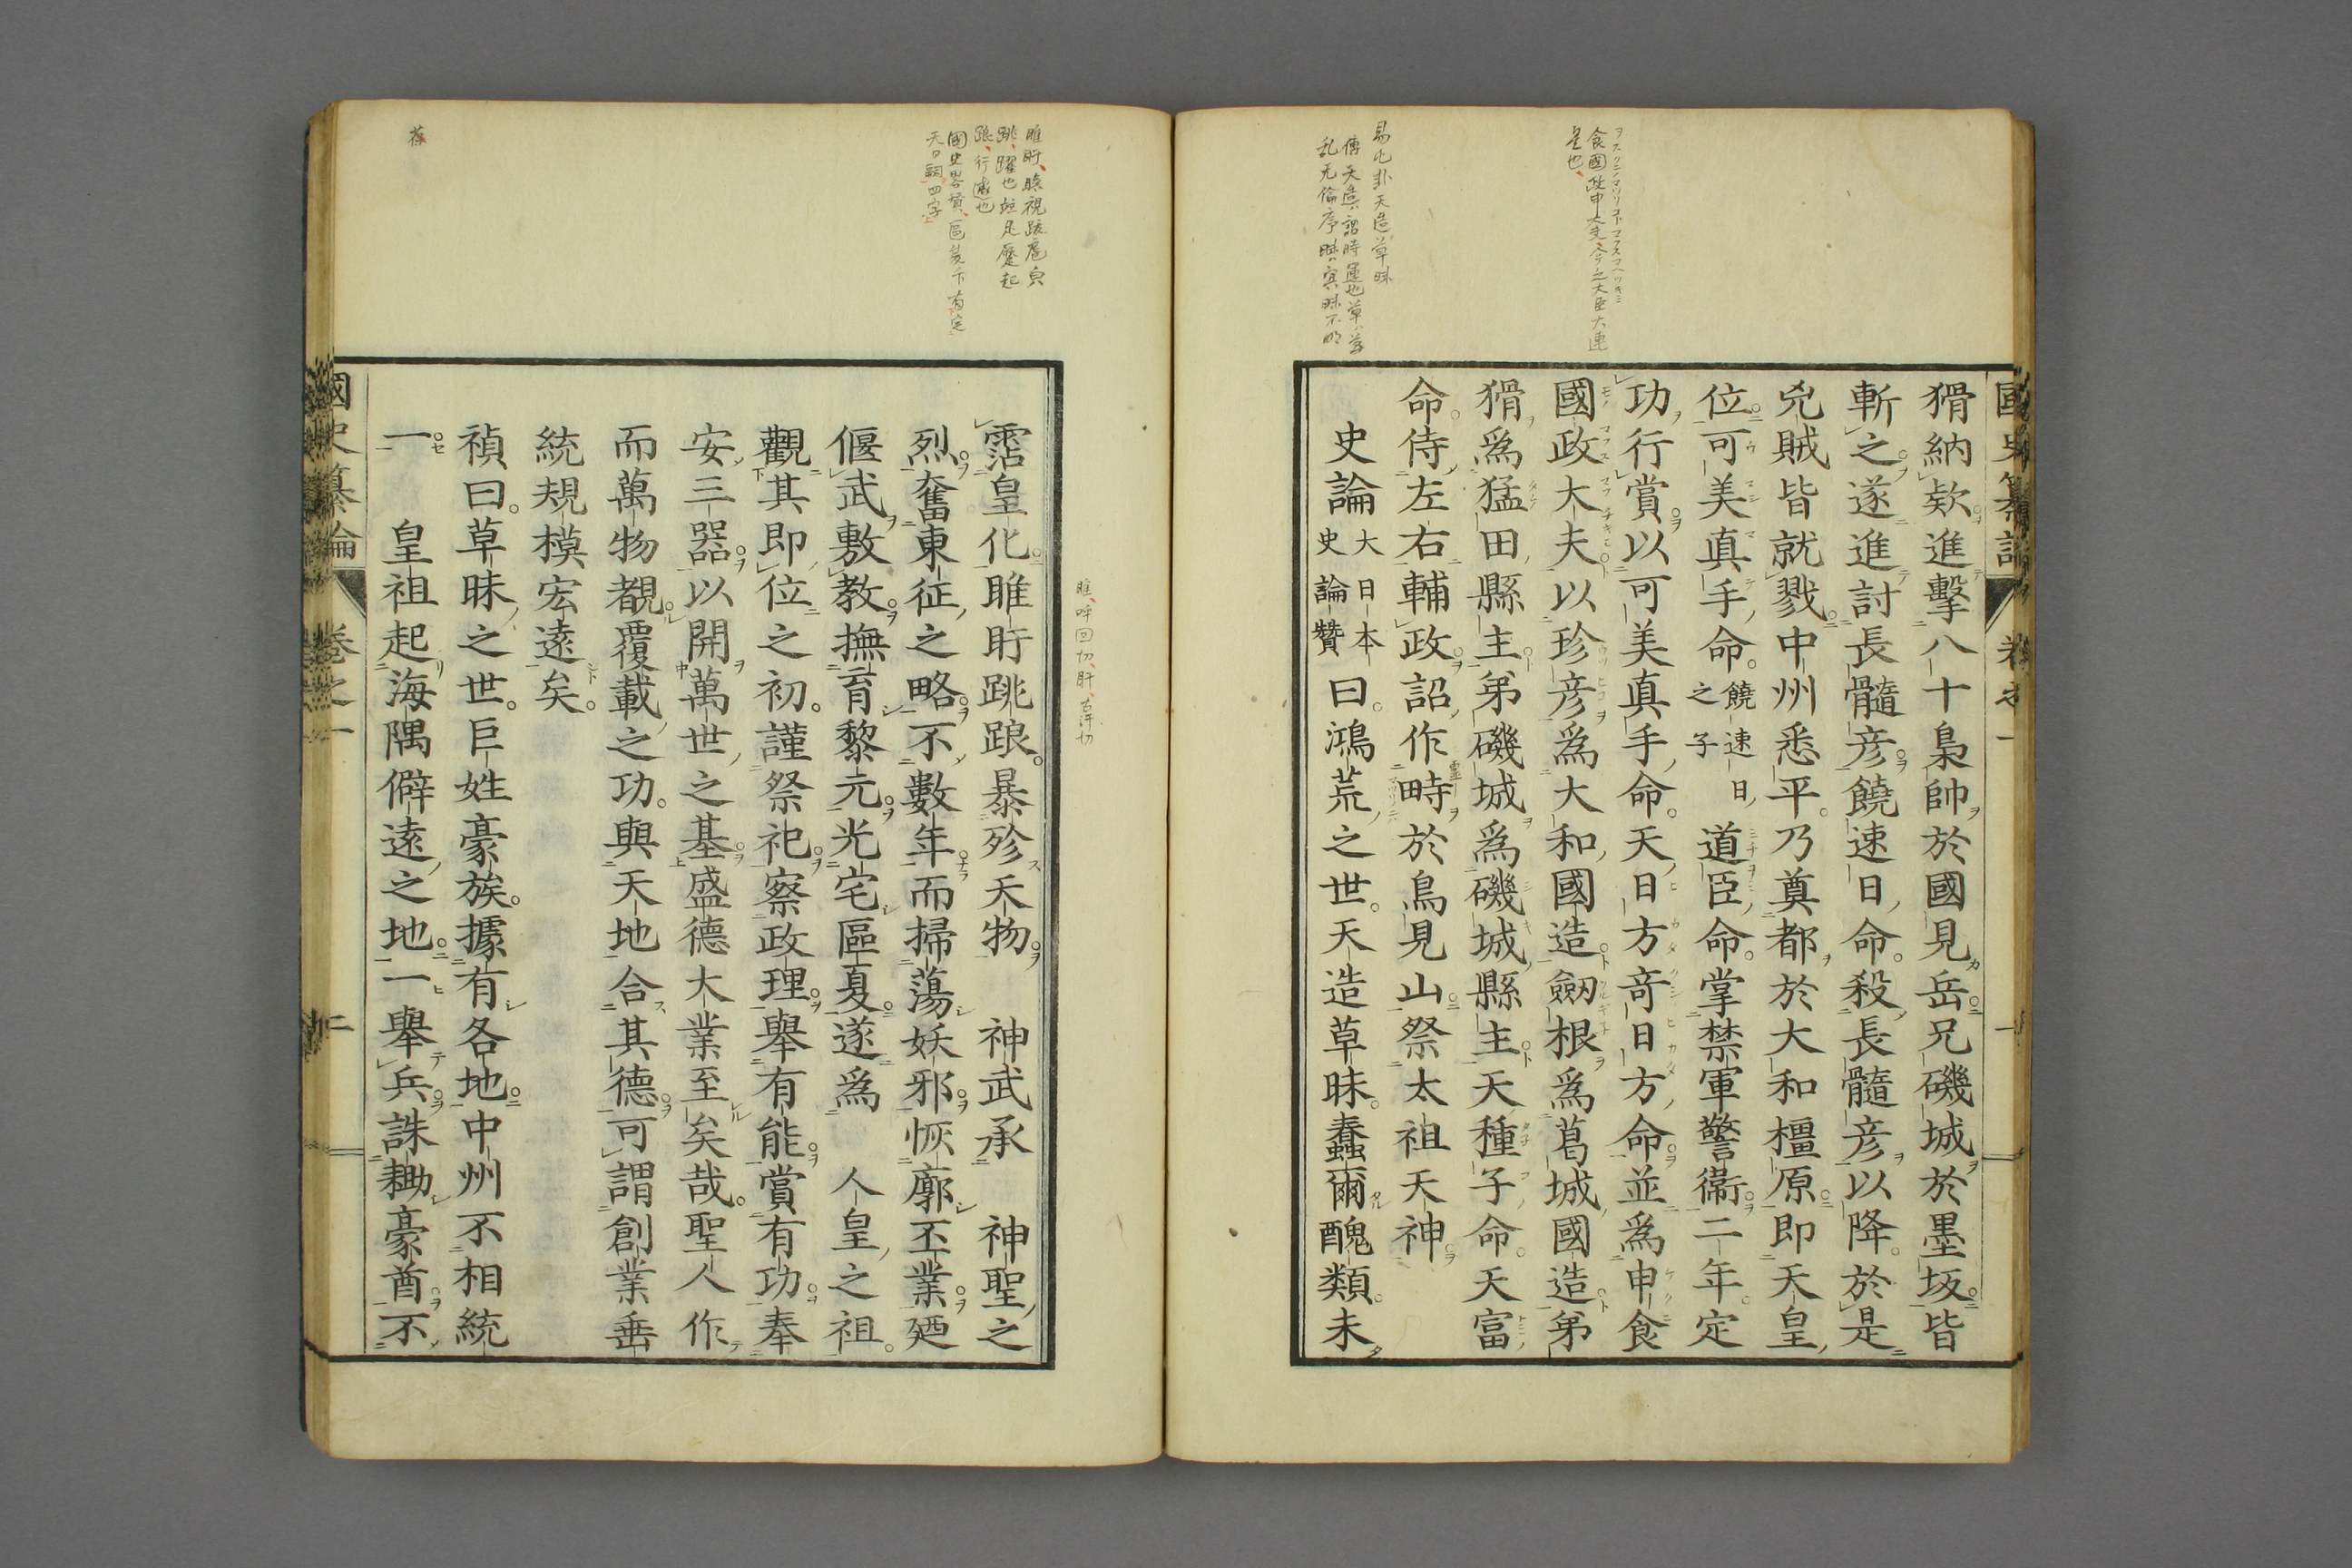 猾納欵進擊八十梟帥於國見岳兄磯城於墨坂皆
斬之遂進討長髓彦饒速日命殺長髓彦以降於是
兇賊皆就戮中州悉平乃奠都於大和橿原即天皇
位可美真手命饒速日之子道臣命掌禁軍警衞二年定
功行賞以可美真手命天日方竒日方命並爲申食
國政大夫以珍彦爲大和國造劔根爲葛城國造弟
猾爲猛田縣主弟磯城爲磯城縣主天種子命天富
命侍左右輔政詔作畤於鳥見山祭太祖天神
史論大日本史論贊曰鴻荒之世天造草昧蠢爾醜類未
霑皇化睢盱跳踉暴殄禾物 神武承 神聖之
烈奮東征之略不數年而掃蕩妖邪恢廓丕業廼
偃武敷教撫育黎元光宅區夏遂爲 人皇之祖
觀其即位之初謹祭祀察政理舉有能賞有功奉
安三器以開萬世之基盛德大業至矣哉聖人作
而萬物覩覆載之功與天地合其德可謂創業垂
統規模宏遠矣
禎曰草昧之世巨姓豪族據有各地中州不相統
一 皇祖起海隅僻遠之地一舉兵誅耡豪酋不
國史纂論 卷之一 二
食國政申大夫今之大臣大連
是也
易屯卦天造草昧
傳天造謂時運也草草
乱无倫序昧冥昧不明
跳躍也
國史畧賛區夏下有定
天日嗣四字